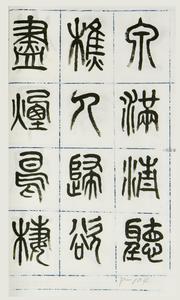 泉滿清聽
樵人歸欲
盡煙鳥棲